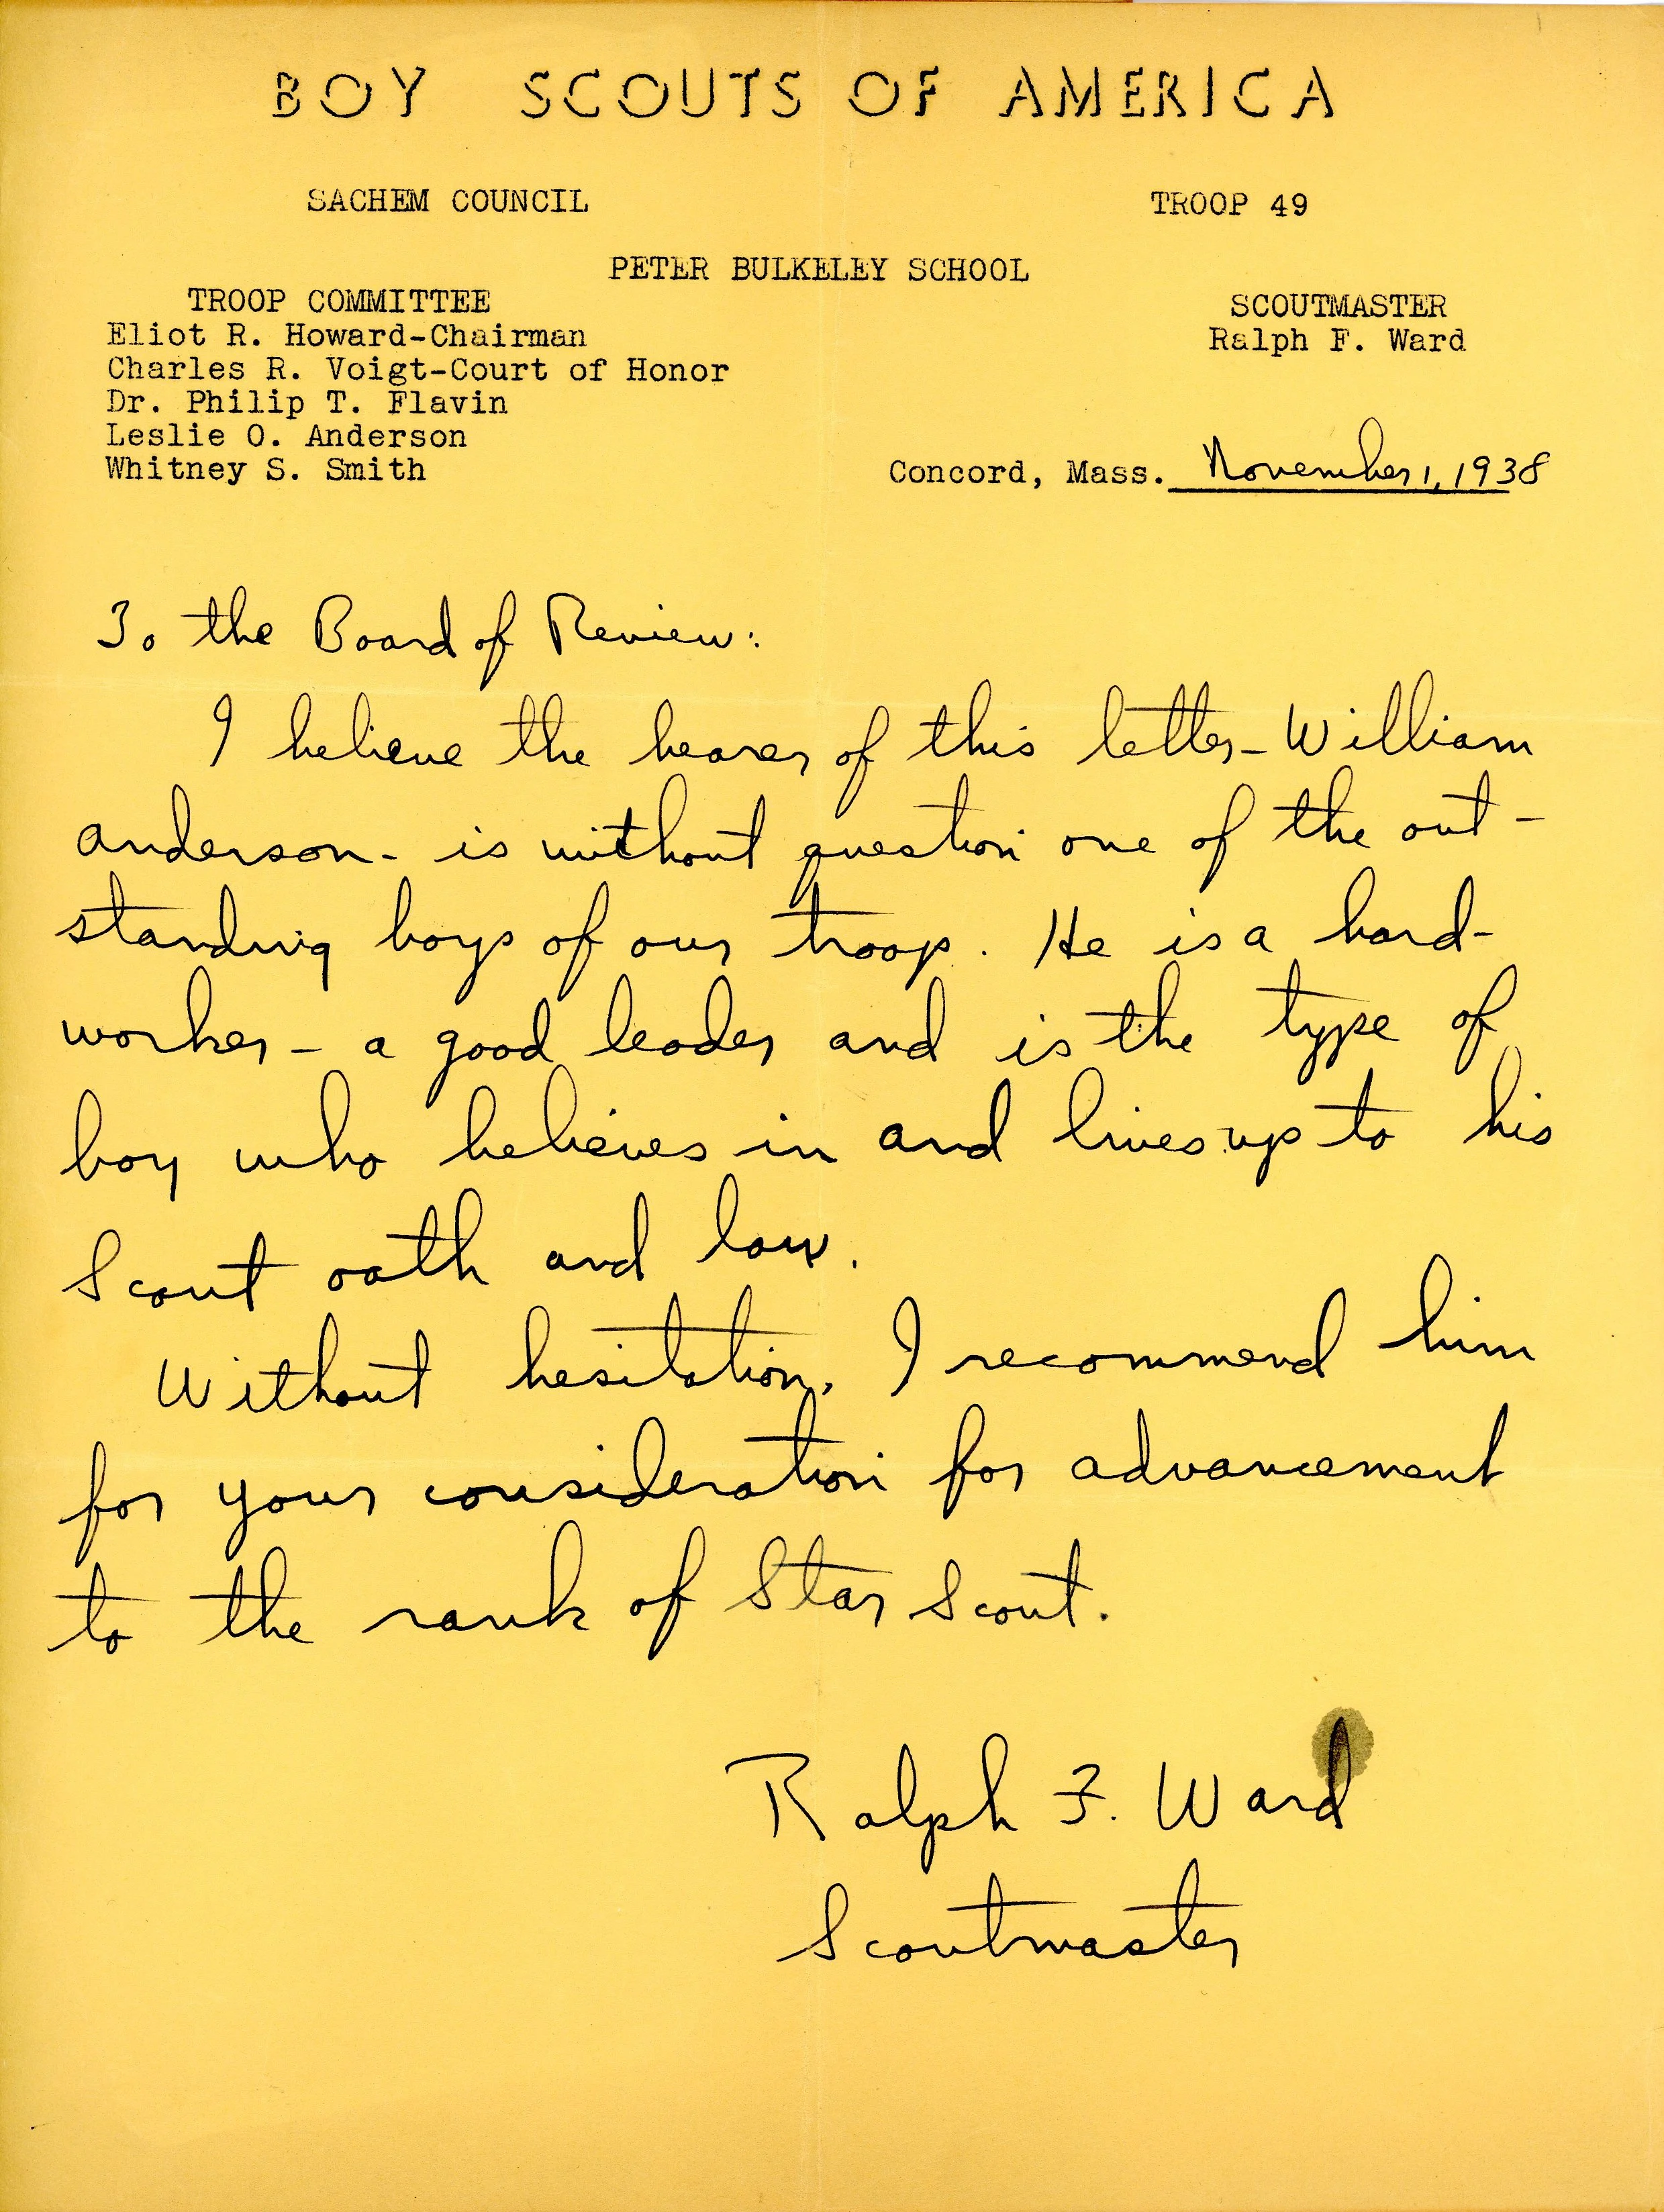 BOY SCOUTS OF AMERICA
SACHEM COUNCIL TROOP 49
PETER BULKELEY SCHOOL
TROOP COMMITTEE
Eliot R. Howard-Chairman
Charles R. Voigt-Court of Honor
Dr. Philip T. Flavin
Leslie O. Anderson
Whitney S. Smith
SCOUTMASTER
Ralph F. Ward
Concord, Mass. November 1, 1938
To the Board of Review:
I believe the bearer of this letter - William
Anderson - is without question one of the out-
standing boys of our troop. He is a hard-
worker - a good leader and is the type of
boy who believes in and lives up to his
Scout oath and law.
Without hesitation, I recommend him
for your consideration for advancement
to the rank of Star Scout.
Ralph F. Ward
Scoutmaster